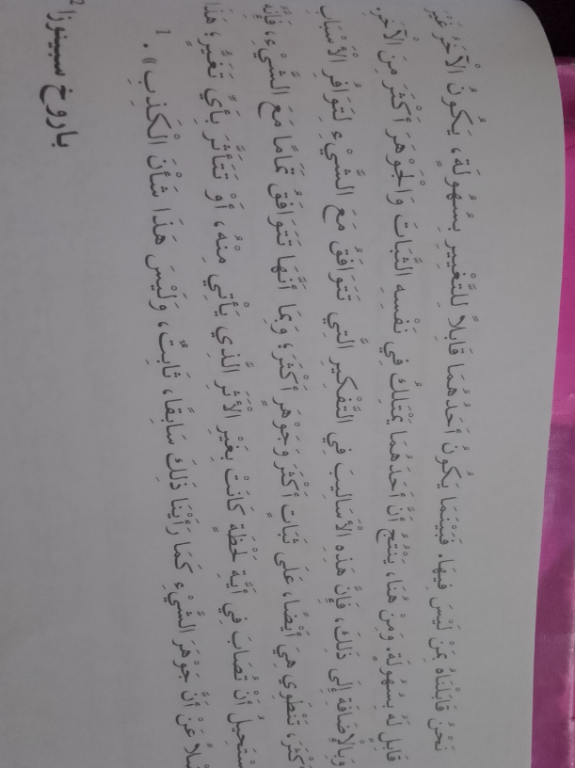 نَحْنُ قَابَلْنَاهُ بِمَنْ لَيْسَ فِيهَا. فَبَيْنَمَا يَكُونُ أَحَدُهُمَا قَابِلاً لِلتَّغْيِيرِ بِسُهُولَةٍ، يَكُونُ الْآخَرُ غَيْرَ
قَابِلٍ لَهُ بِسُهُولَةٍ. وَمِنْ هُنَا، يَنْتُجُ أَنَّ أَحَدَهُمَا يَمْتَلِكُ فِي نَفْسِهِ الثَّبَاتَ وَالْجَوْهَرَ أَكْثَرَ مِنَ الْآخَرِ.
وَبِالْإِضَافَةِ إِلَى ذَلِكَ، فَإِنَّ هَذِهِ الْأَسَالِيبَ فِي التَّفْكِيرِ الَّتِي تَتَوَافَقُ مَعَ الشَّيْءِ لِتَوَافُرِ الْأَسْبَابِ
أَكْثَرَ، تَنْطَوِي هِيَ أَيْضًا، عَلَى ثَبَاتٍ أَكْثَرَ وَجَوْهَرٍ أَكْثَرَ، وَبِمَا أَنَّهَا تَتَوَافَقُ تَمَامًا مَعَ الشَّيْءِ، فَإِنَّهُ
يَسْتَحِيلُ أَنْ تُصَابَ فِي أَيَّةِ لَحْظَةٍ كَانَتْ بِغَيْرِ الْأَثَرِ الَّذِي يَأْتِي مِنْهُ، أَوْ تَتَأَثَّرَ بِأَيِّ تَغَيُّرٍ؛ هَذَا
فَضْلاً عَنْ أَنَّ جَوْهَرَ الشَّيْءِ كَمَا رَأَيْنَا ذَلِكَ سَابِقًا، ثَابِتٌ، وَلَيْسَ هَذَا شَأْنَ الْكَذِبِ». 1
باروخ سبينوزا2